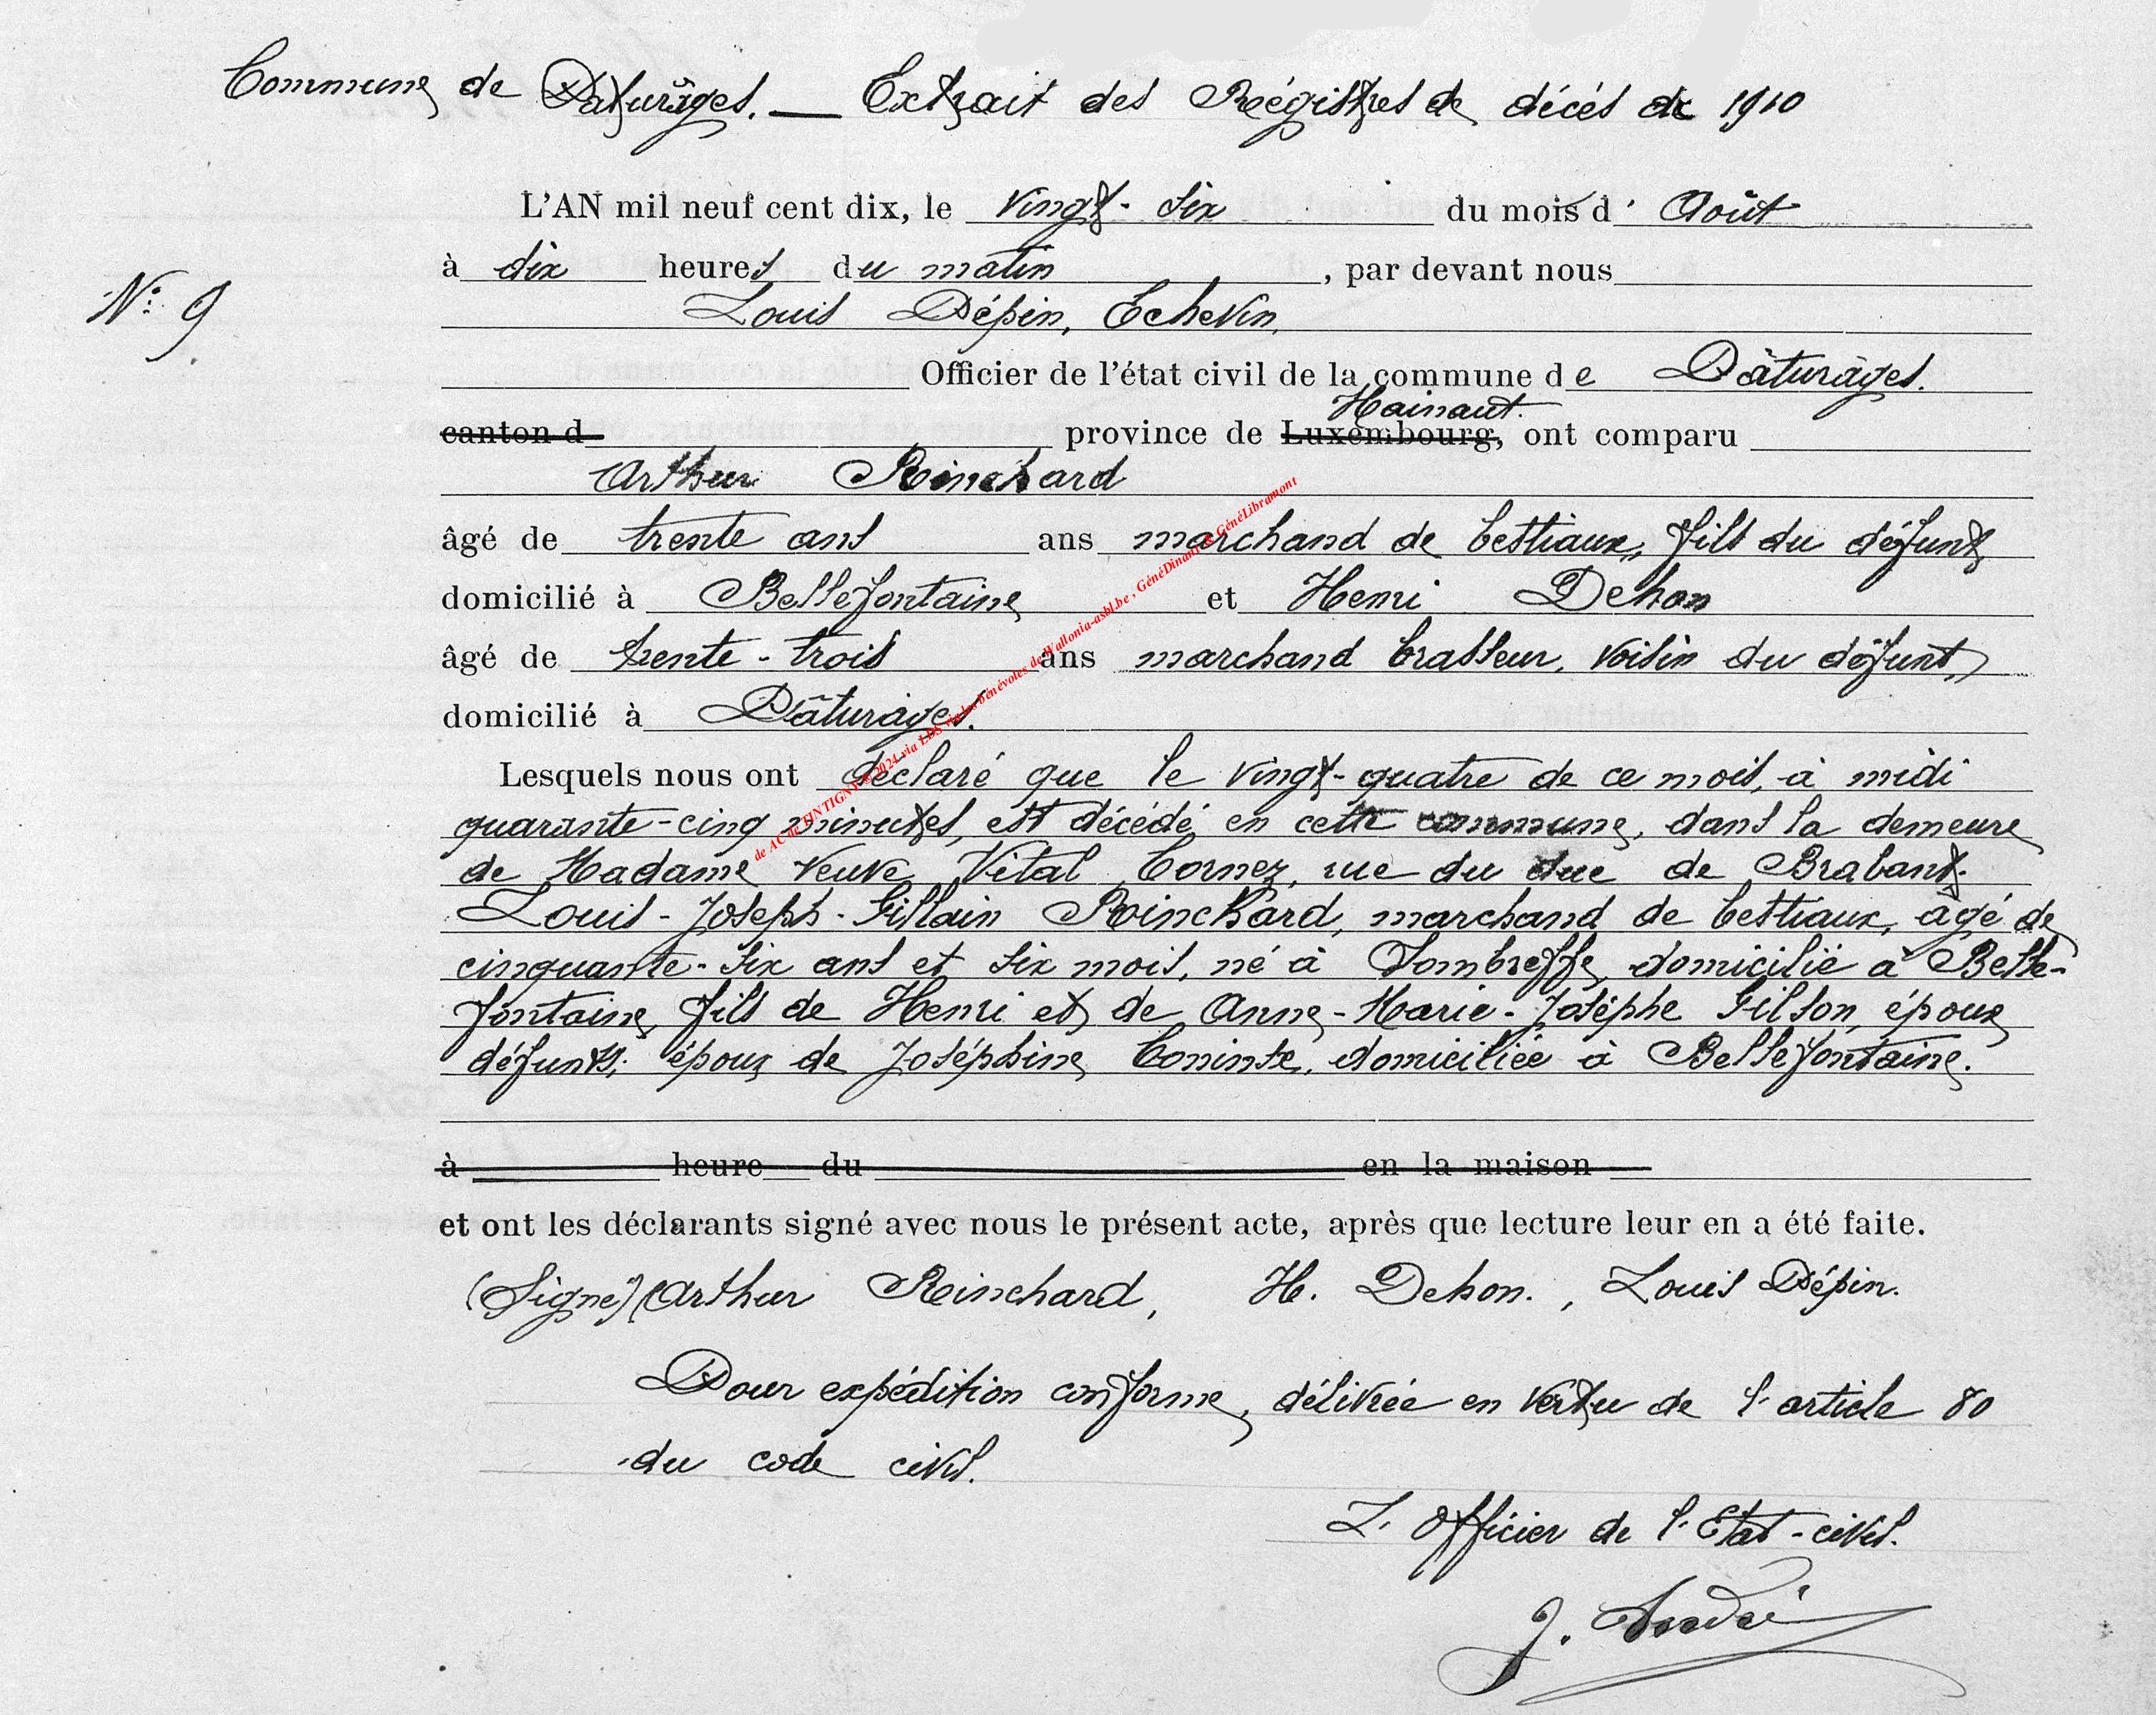 Commune de Pâturages. — Extrait des Régistres de décés de 1910
L'AN mil neuf cent dix, le vingt-six du mois d' Août
à dix heures du matin , par devant nous
N° 9
Louis Pépin, Echevin,
Officier de l'état civil de la commune de Pâturages.
Hainaut.
canton d province de Luxembourg, ont comparu
Arthur Reinchard
âgé de trente ans ans marchand de bestiaux, fils du défunt
domicilié à Bellefontaine et Henri Dehon
âgé de trente-trois ans marchand brasseur, voisin du défunt,
domicilié à Pâturages.
Lesquels nous ont déclaré que le vingt-quatre de ce mois, à midi
quarante-cinq minutes, est décédé en cette commune, dans la demeure
de Madame veuve Vital Cornez, rue du duc de Brabant
Louis-Joseph-Gillain Roinchard, marchand de bestiaux, âgé de
cinquante-six ans et six mois, né à Sombreffe, domicilié à Belle-
fontaine, fils de Henri et de Anne-Marie-Josèphe Gilson, époux
défunts; époux de Joséphine Coninx, domiciliée à Bellefontaine.
à heure du en la maison
et ont les déclarants signé avec nous le présent acte, après que lecture leur en a été faite.
(Signé) Arthur Reinchard, H. Dehon. , Louis Pépin.
Pour expédition conforme, délivrée en vertu de l'article 80
du code civil.
L'officier de l'Etat-civil.
J. André
de AC de TINTIGNY © 2024 via LDS via les bénévoles de Wallonia-asbl.be , GénéDinant & GénéLibramont